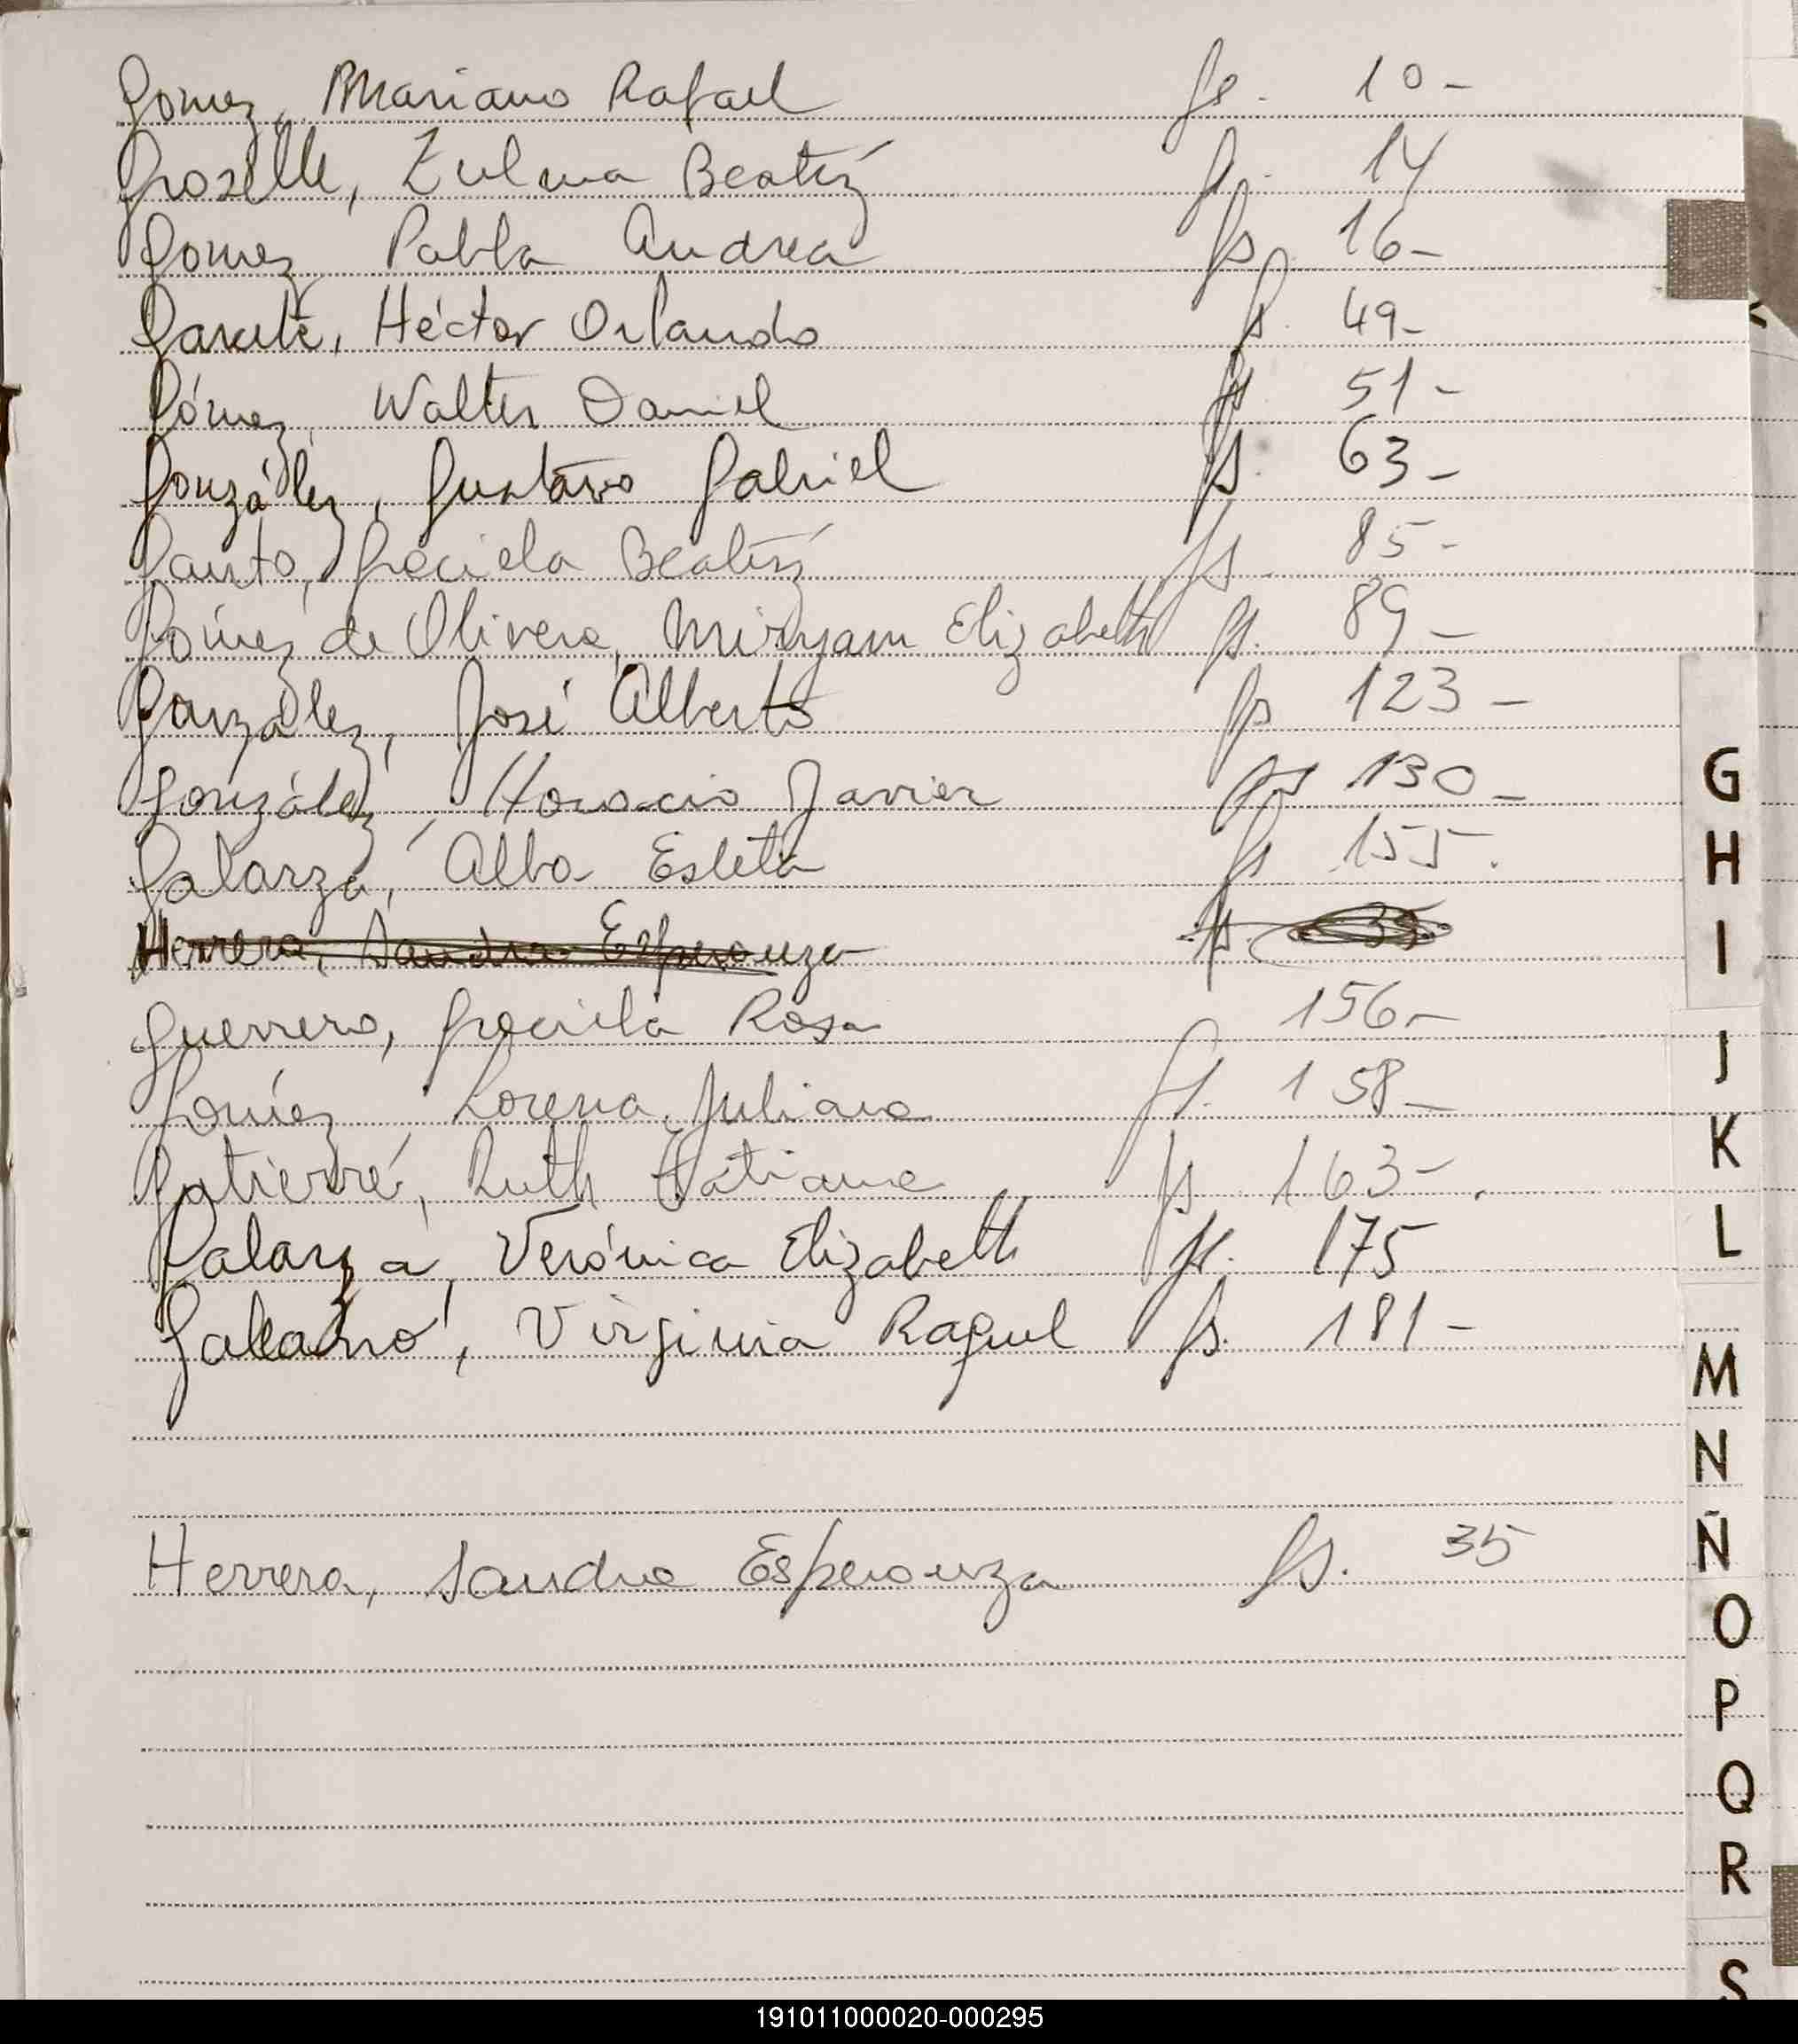 Gomez, Mariano Rafael fs. 10-
Groselle, Zulma Beatriz fs. 14
Gomez Pabla Andrea fs. 16-
Garate, Héctor Orlando fs. 49-
Gómez, Walter Daniel fs. 51-
González, Gustavo Gabriel fs. 63-
Gauto, Graciela Beatriz fs. 85-
Gómez de Olivera, Miryam Elizabeth fs. 89-
González, José Alberto fs 123-
González, Horacio Javier fs 130-
Galarza, Alba Estela fs 155.
Herrera, Sandra Esperanza fs. 35
Guerrero, Graciela Rosa 156-
Goméz Lorena Juliana fs. 158-
Ruth Tatiana fs 163-.
Galarza, Verónica Elizabeth fs. 175
Galeano, Virginia Raquel fs. 181-
Herrera, Sandra Esperanza fs. 35
G
H
I
J
K
L
M
N
Ñ
O
P
Q
R
S
191011000020-000295